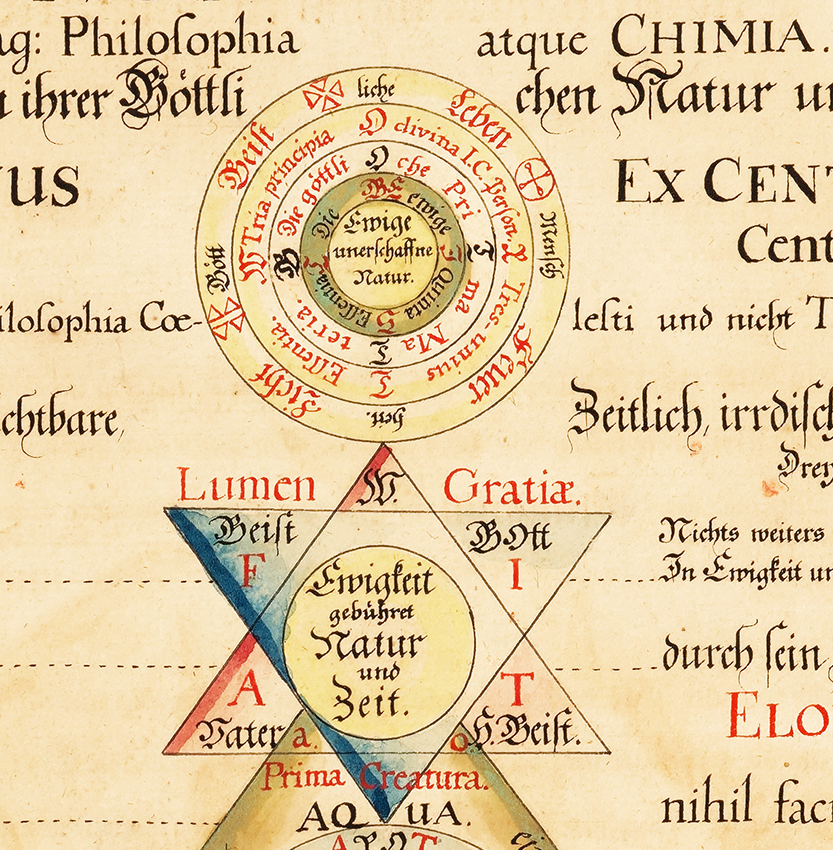 ag: Philoſophia atque CHIMIA.
ihrer Göttli chen Natur un
US EX CENT
Cent
iloſophia Cœ- leſti und nicht T
chtbare, Zeitlich, irrdiſch
Drey
liche
Leben
Menſch
Feuer
hen.
Licht
Gött
Geiſt
Tria principia O divina I.C. Perſon.
Tres-unius
Eſſentia.
Die göttli O che Pri
ma Ma teria.
Die ewige
Quinta Eſſentia
Ewige
unerſchaffne
Natur.
Lumen W. Gratiæ.
Geiſt GOtt
F I
Nichts weiters
In Ewigkeit un
Ewigkeit
gebühret
Natur
und
Zeit.
durch ſein
A T
ELO
Vater a. o H. Geiſt.
Prima Creatura.
AQUA.
nihil faci